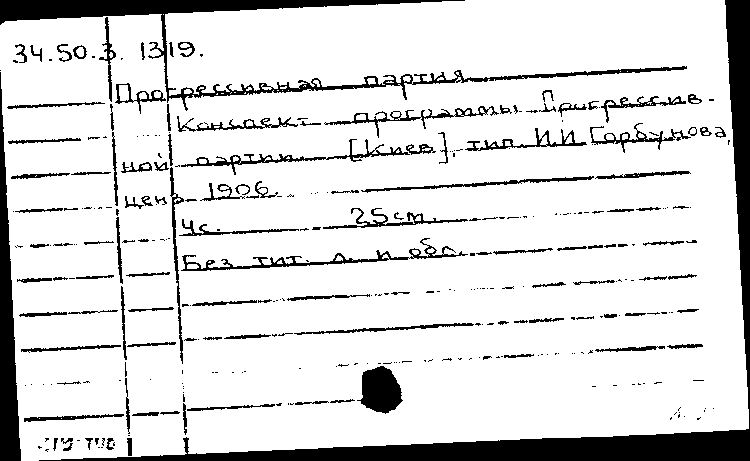 34.50.3. 1319.
Прогрессивная партия
Конспект программы Прогрессив-
ной партии. [Киев], тип. И.И Горбунова,
ценз 1906.
4с. 25см.
Без тит. л. и обл.